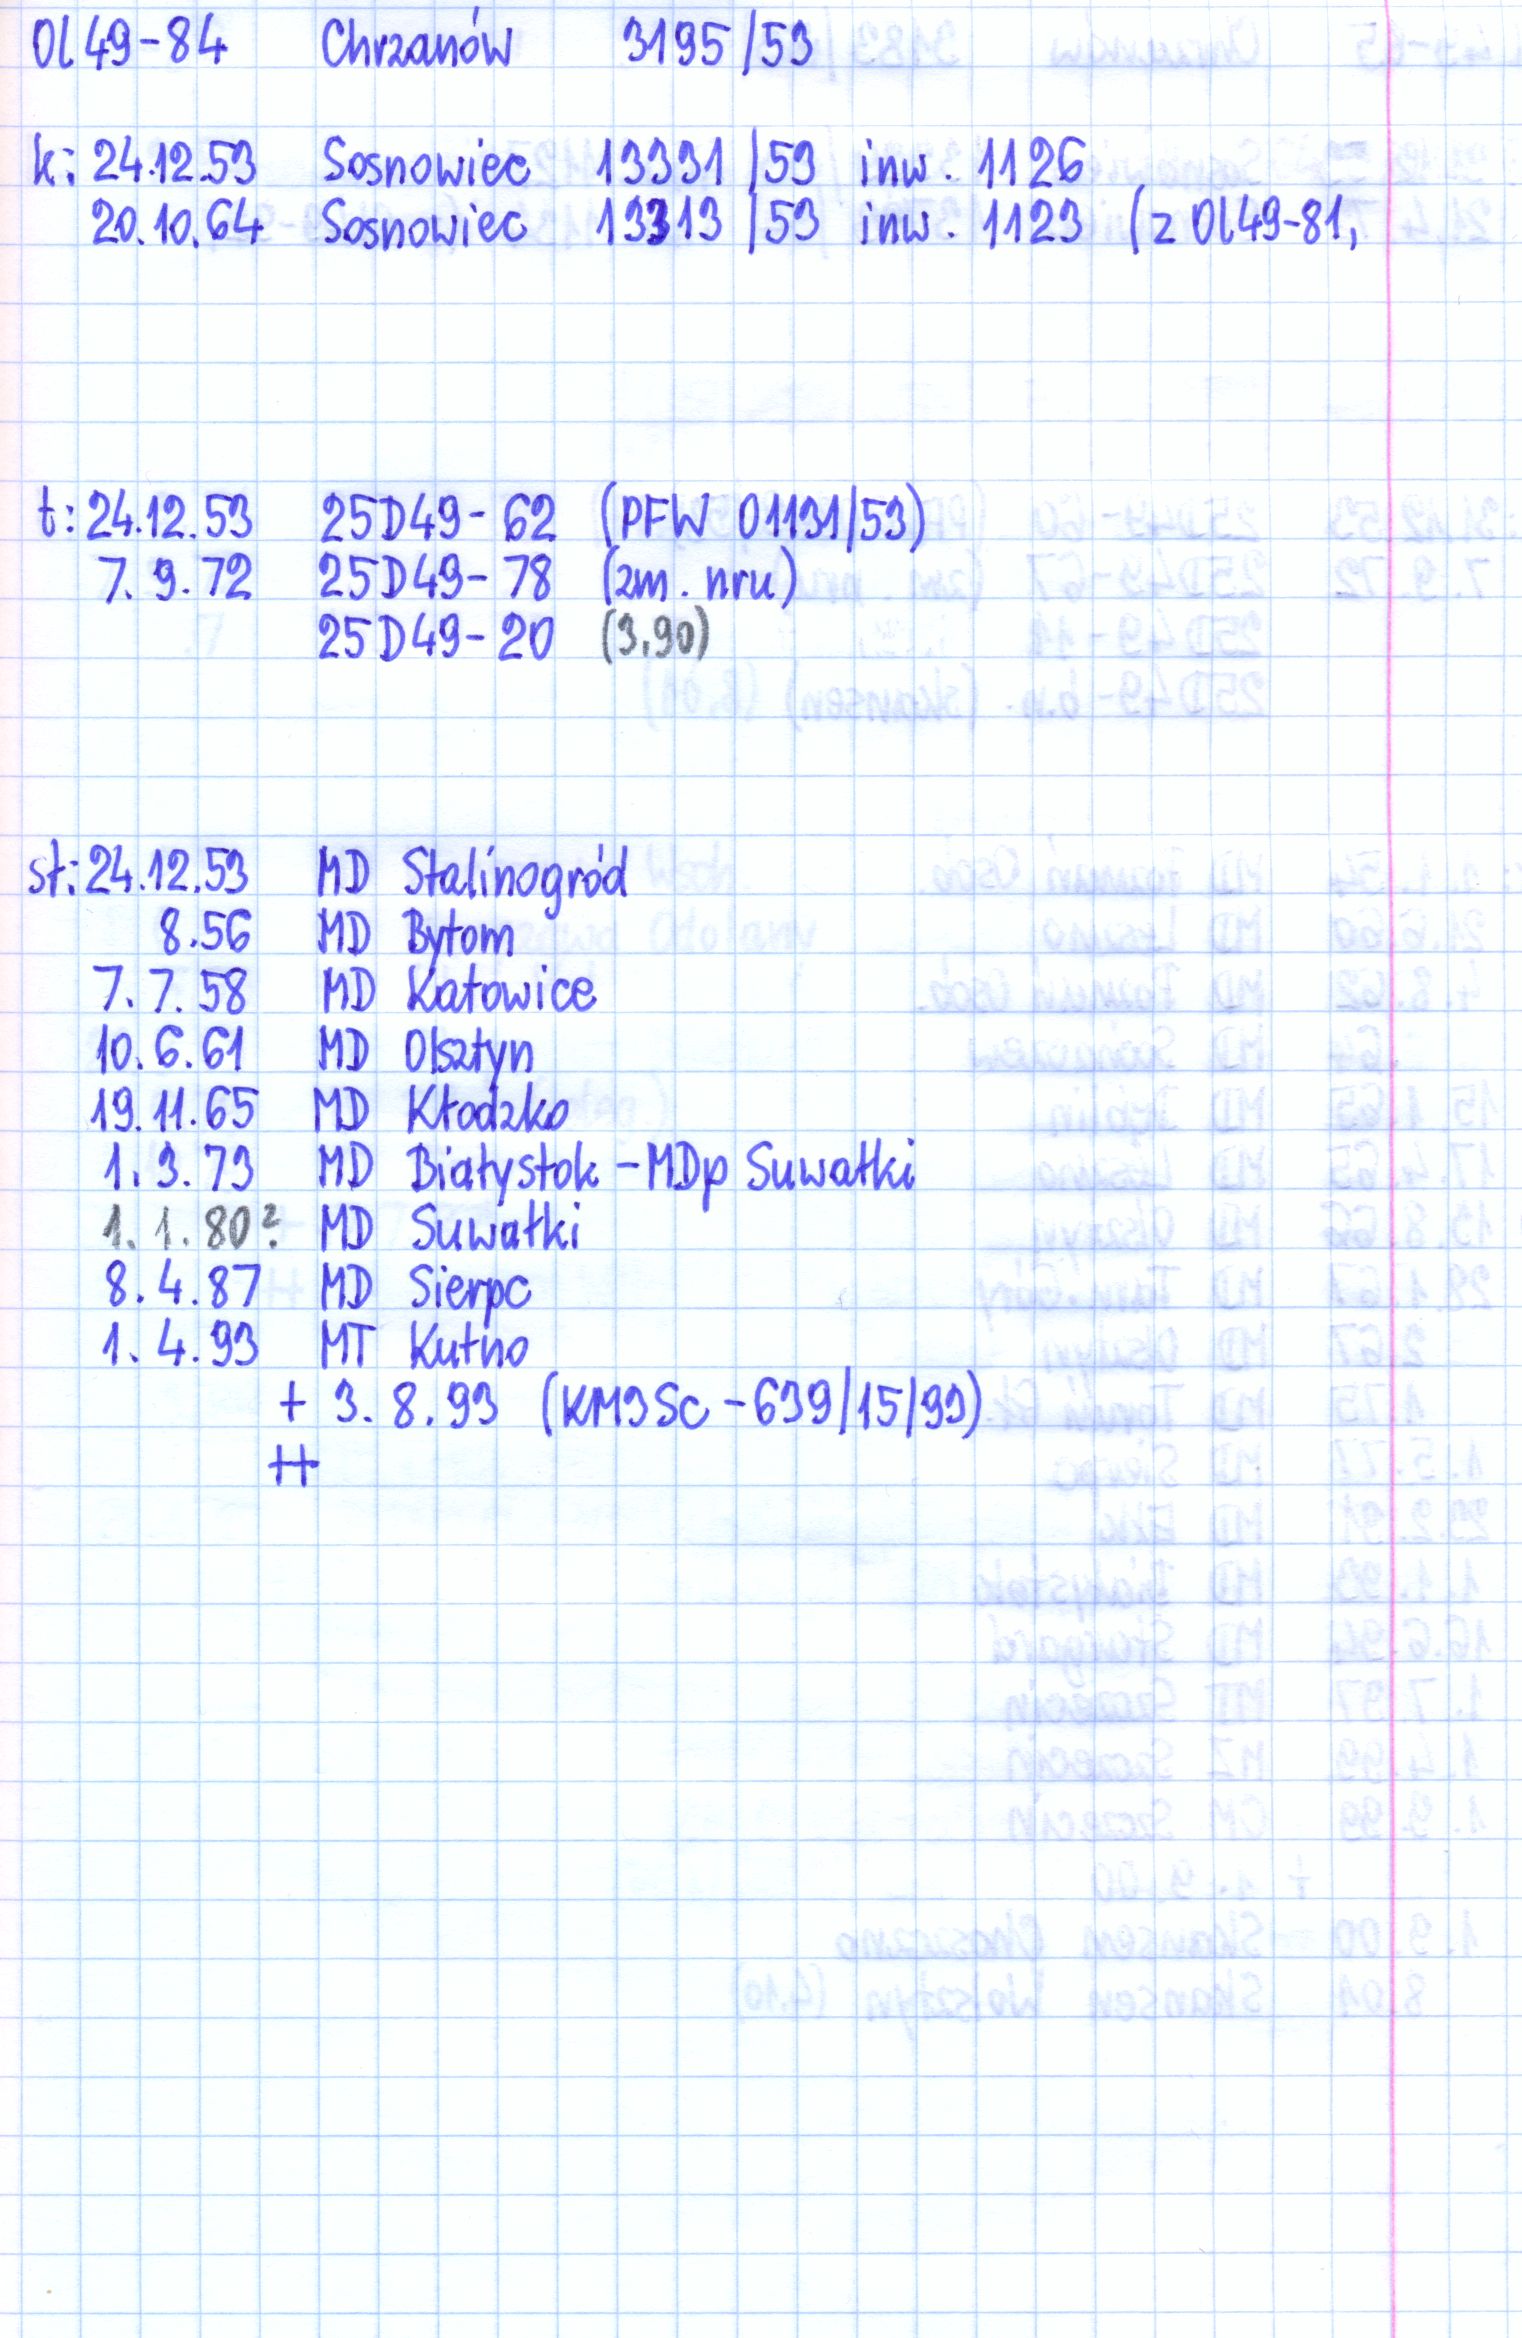 Ol49-84 Chrzanów 3195/53
k: 24.12.53 Sosnowiec 13331/53 inw. 1126
20.10.64 Sosnowiec 13313/53 inw. 1123 (z Ol49-81,
t: 24.12.53 25D49-62 (PFW 01131/53)
7.9.72 25D49-78 (zm. nru)
25D49-20 (3.90)
st: 24.12.53 MD Stalinogród
8.56 MD Bytom
7.7.58 MD Katowice
10.6.61 MD Olsztyn
19.11.65 MD Kłodzko
1.3.73 MD Białystok - MDp Suwałki
1.1.80? MD Suwałki
8.4.87 MD Sierpc
1.4.93 MT Kutno
+ 3.8.93 (KM3Sc-639/15/93)
++